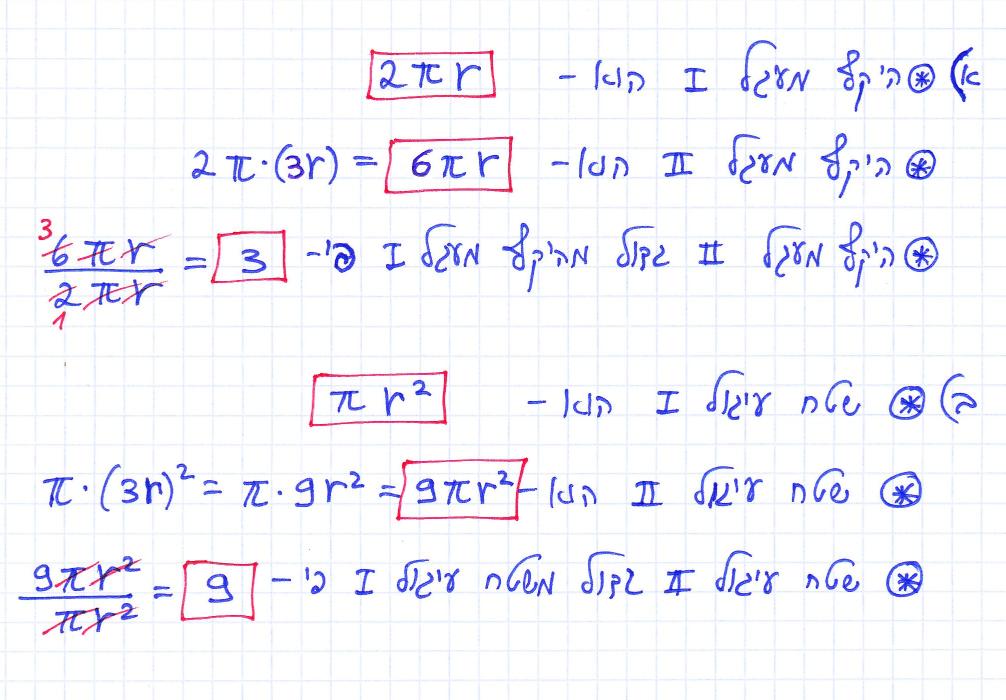 א) ⊛ היקף מעגל I הוא - 2πr
⊛ היקף מעגל II הוא - 2π·(3r) = 6πr
⊛ היקף מעגל II גדול מהיקף מעגל I פי - 6πr/2πr = 3 3 1
ב) ⊛ שטח עיגול I הוא - πr²
⊛ שטח עיגול II הוא - π·(3r)² = π·9r² = 9πr²
⊛ שטח עיגול II גדול משטח עיגול I פי - 9πr²/πr² = 9